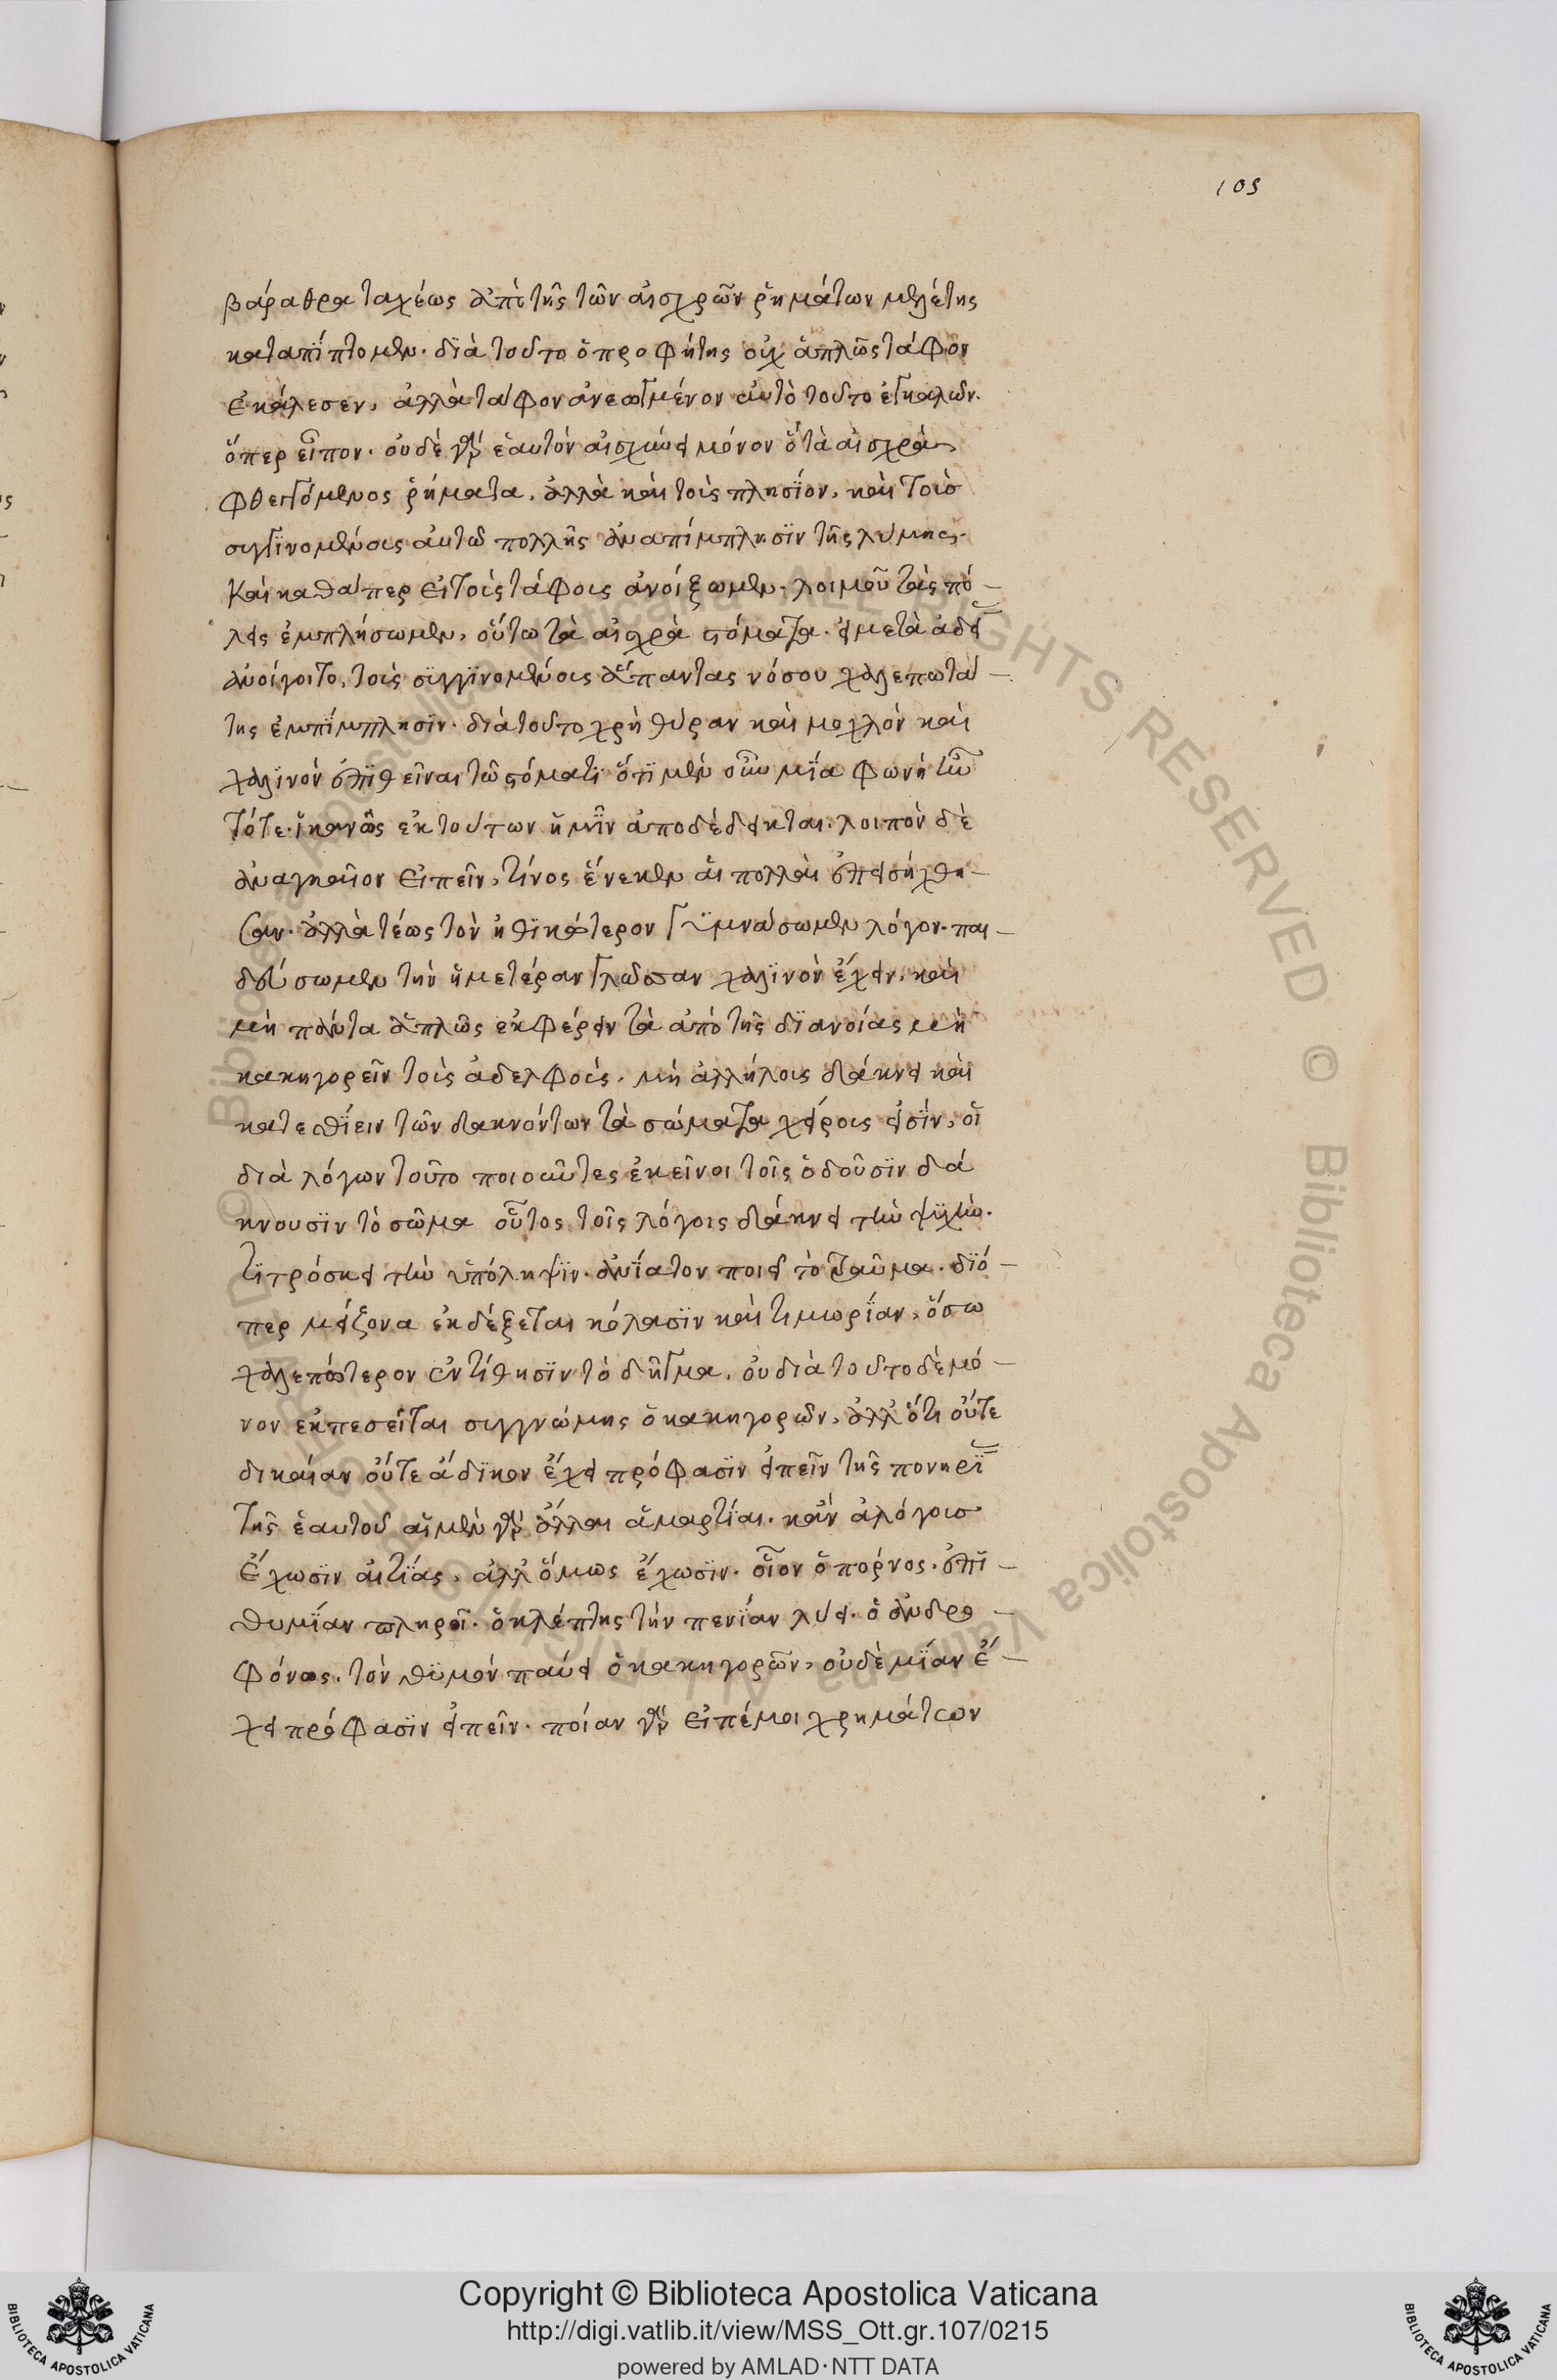 105
βάραθρα ταχέως ἀπὸ τῆς τῶν αἰσχρῶν ῥημάτων μελέτης
καταπίπτομεν. διὰ τοῦτο ὁ προφήτης οὐχ ἁπλῶς τάφον
ἐκάλεσεν, ἀλλὰ τάφον ἀνεωγμένον αὐτὸ τοῦτο ἐγκαλῶν.
ὅπερ εἶπον. οὐδὲ γὰρ ἑαυτὸν αἰσχύνει μόνον ὁ τὰ αἰσχρὰ
φθεγγόμενος ῥήματα, ἀλλὰ καὶ τοὶς πλησΐον, καὶ τοὶσ
συγγινομένοις αὐτῶ πολλῆς ἀναπίμπλησϊν τῆς λύμης.
Καὶ καθάπερ εἰ τοὶς τάφοις ἀνοίξωμεν. λοιμοῦ τὰς πό-
λεις ἐμπλήσωμεν, οὕτω τὰ αἰσχρὰ στόματα. εἰ μετὰ ἀδεί
ἀνοίγοιτο, τοὶς σϊγγϊνομένοις ἅπαντας νόσου χαλεπωτά-
της ἐμπΐμπλησϊν. διὰ τοῦτο χρὴ θύραν καὶ μοχλὸν καὶ
χαλϊνὸν ἐπϊθεῖναι τῶ στόματϊ ὅτϊ μὲν οὖν μΐα φωνὴ ἦν
τότε. ἱκανῶς ἐκ τούτων ἡμῖν ἀποδέδεικται. λοιπὸν δὲ
ἀναγκαῖον εἰπεῖν, τίνος ἕνεκεν αἱ πολλαὶ ἐπεισήχθη-
σαν. ἀλλὰ τέως τὸν ἠθϊκώτερον γϋμνάσωμεν λόγον. παι-
δεύσωμεν τὴν ἡμετέραν γλῶσσαν χαλϊνὸν ἔχειν, καὶ
μὴ πάντα ἁπλῶς ἐκφέρειν τὰ ἀπὸ τῆς δϊανοίας μὴ
κακηγορεῖν τοὶς ἀδελφοὶς. μὴ ἀλλήλοις δάκνει καὶ
κατεσθΐειν τῶν δακνόντων τὰ σώματα χείροις εἰσΐν, οἱ
διὰ λόγων τοῦτο ποιοῦντες ἐκεῖνοι τοῖς ὀδοῦσϊν δά
κνουσϊν τὸ σῶμα οὗτος τοῖς λόγοις δάκνει τὴν ψϋχὴν.
τϊτρόσκει τὴν ὑπόληψϊν. ἀνΐατον ποιεῖ τὸ τραῦμα. δϊό-
περ μείζονα ἐκδέξεται κόλασϊν καὶ τιμωρΐαν, ὅσω
χαλεπώτερον ἐντίθησϊν τὸ δῆγμα, οὐ διὰ τοῦτο δὲ μό-
νον ἐκπεσεῖται σιγγνώμης ὁ κακηγορῶν, ἀλλ' ὅτι οὔτε
δικαίαν οὔτε ἄδϊκον ἔχει πρόφασϊν εἰπεῖν τῆς πονηρΐ
τῆς ἑαυτοῦ αἱ μὲν γὰρ ἄλλαι ἁμαρτίαι. κἂν ἀλόγοισ
ἔχωσϊν αἰτΐας, ἀλλ' ὅμως ἔχωσϊν. οἷον ὁ πόρνος. ἐπϊ-
θυμΐαν πληροῖ. ὁ κλέπτης τὴν πενΐαν λύει. ὁ ἀνδρο-
φόνος. τὸν θϋμὸν παύει ὁ κακηγορῶν, οὐδὲ μΐαν ἔ-
χει πρόφασϊν εἰπεῖν. ποίαν γὰρ εἰπέ μοι χρημάτων
© Biblioteca Apostolica Vaticana ALL RIGHTS RESERVED © Biblioteca Apostolica Vaticana ALL RIGHTS RESERVED
BIBLIOTECA APOSTOLICA VATICANA
Copyright © Biblioteca Apostolica Vaticana
http://digi.vatlib.it/view/MSS_Ott.gr.107/0215
powered by AMLAD·NTT DATA
BIBLIOTECA APOSTOLICA VATICANA